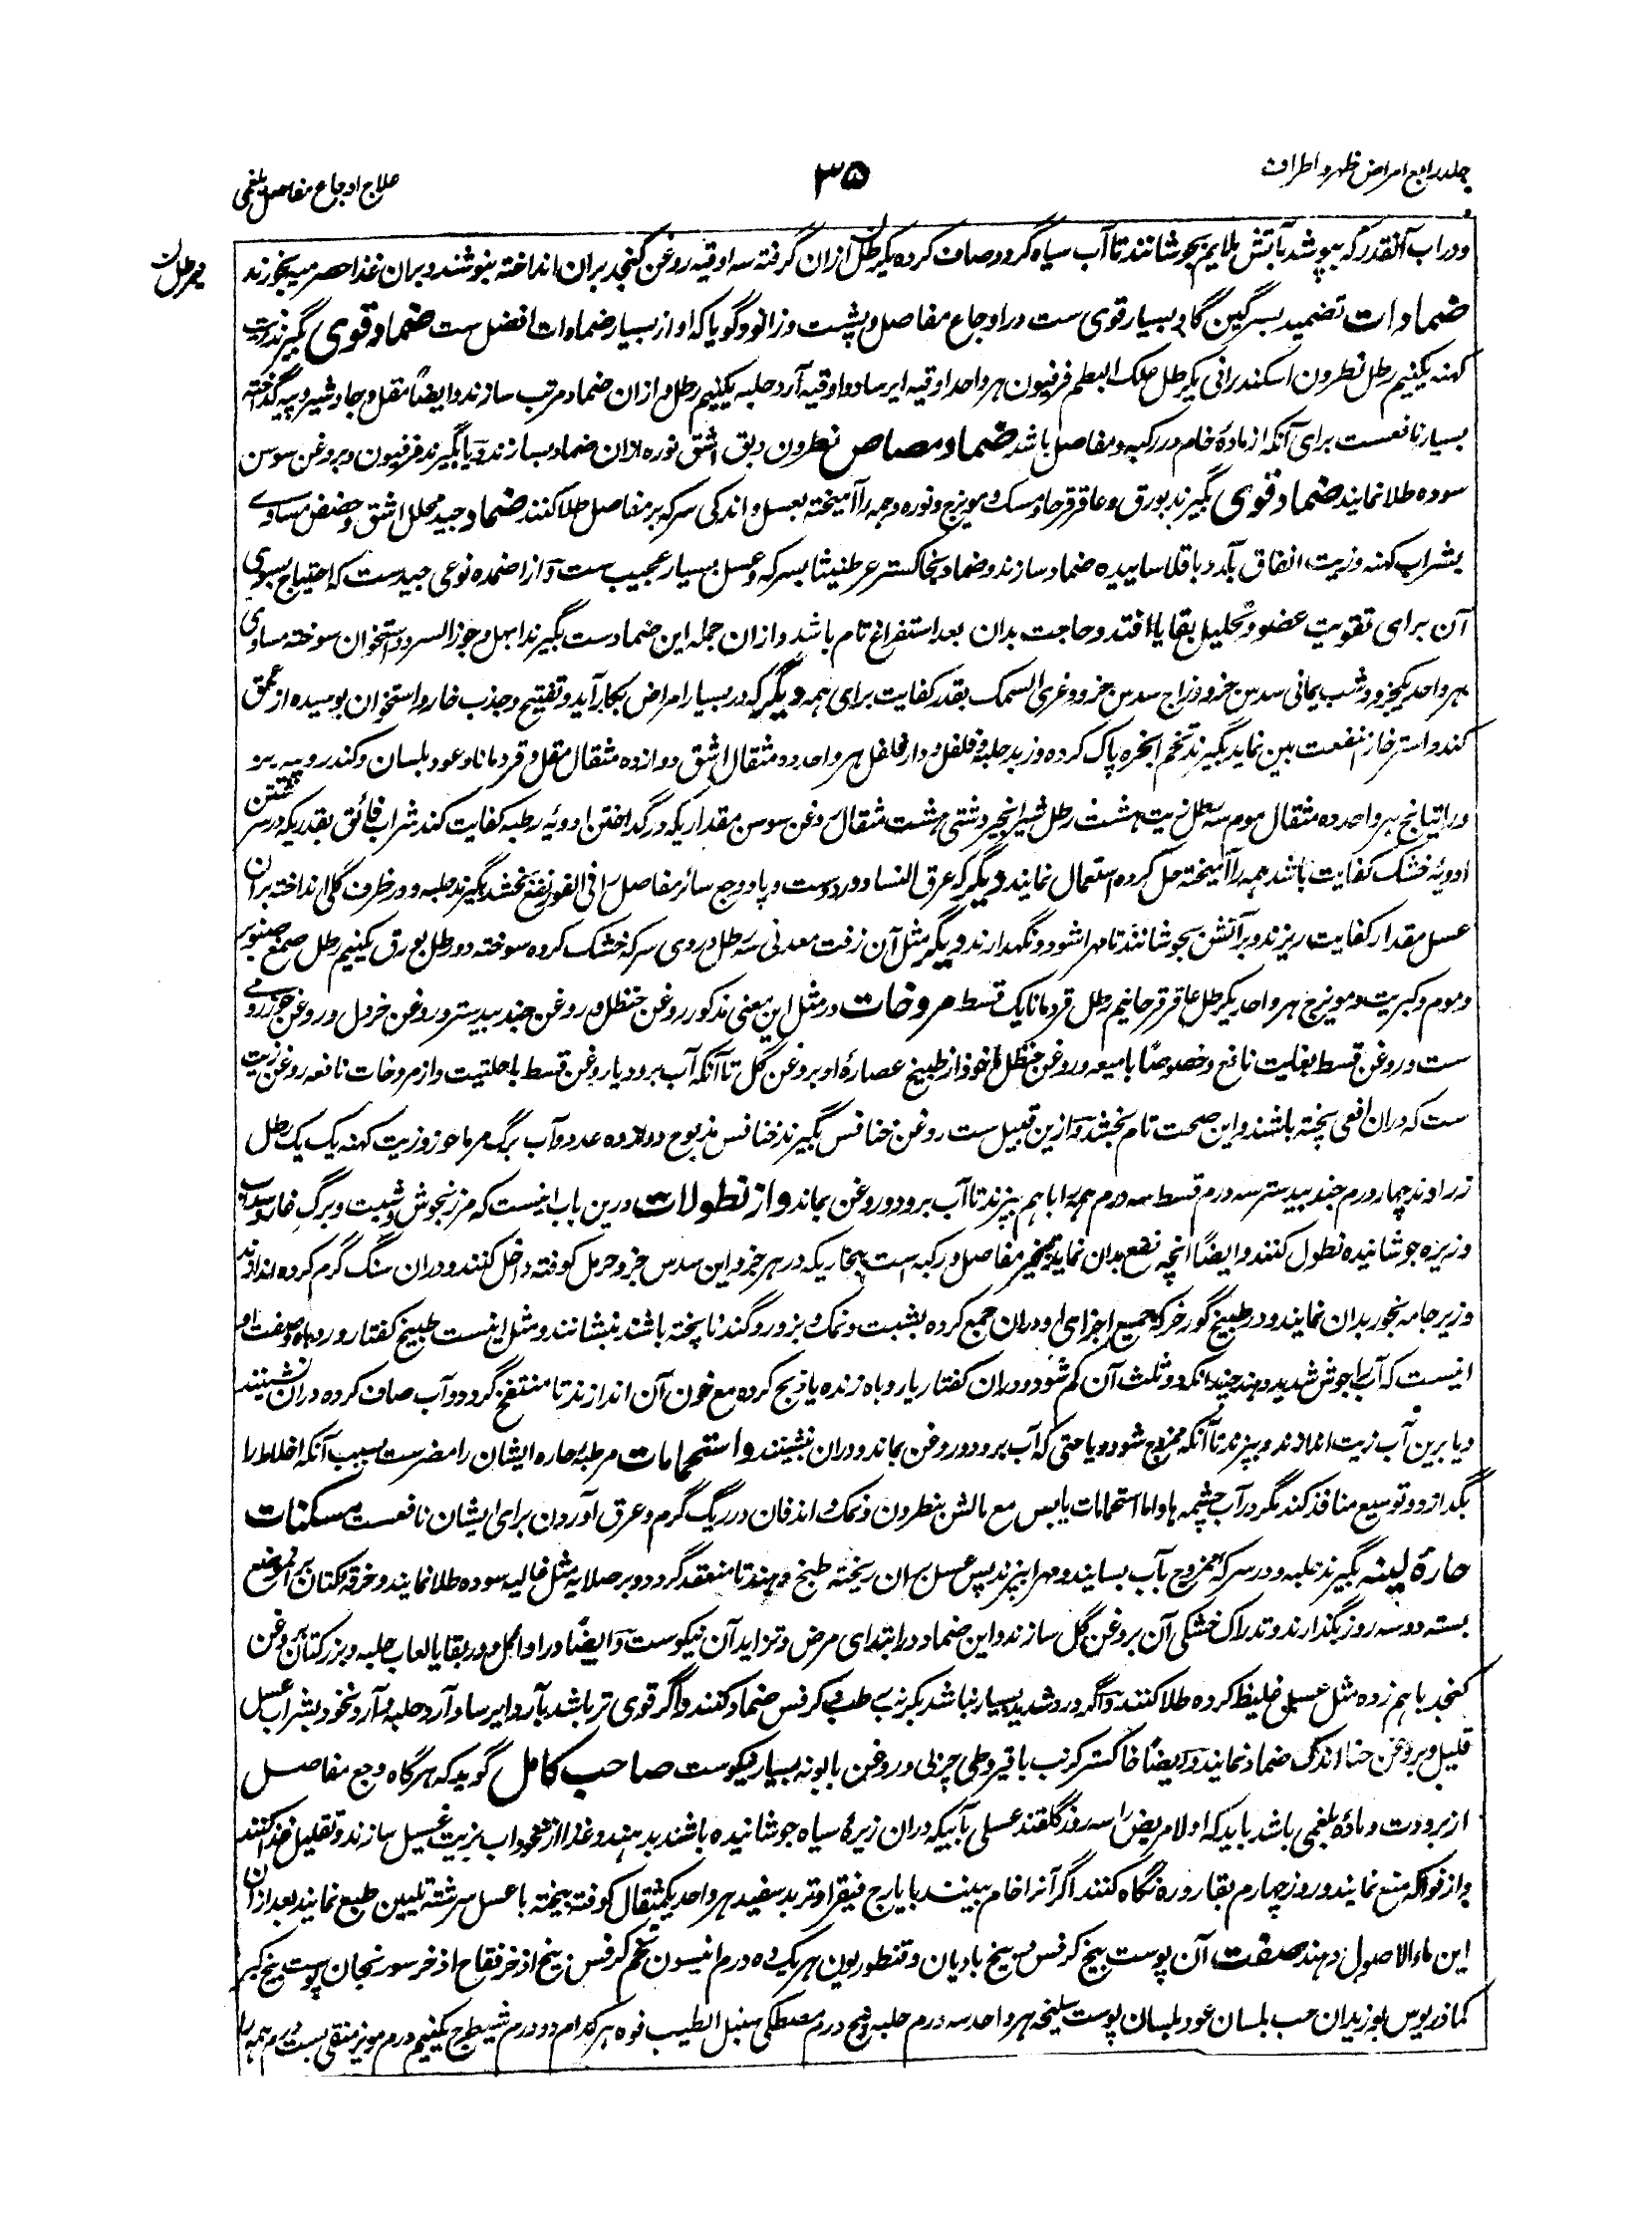 جلد رابع امراض ظهر و اطراف
۳۵
علاج اوجاع مفاصل بلغمی
و در آب آنقدر که بپوشد بآتش ملایم بجوشانند تا آب سیاه گردد صاف کرده یکرطل ازان گرفته سه اوقیه روغن کنجد بران انداخته بنوشند و بران غذا حصرمیه بخورند
ضمادات تضمید بسرگین گاو بسیار قوی ست در اوجاع مفاصل و پشت و زانو و گویا که او از بسیار ضمادات افضل ست ضماد قوی بگیرند زیت
کهنه یکنیم رطل نطرون اسکندرانی یکرطل علک البطم فرفیون هر واحد اوقیه ایرسا دو اوقیه آرد حلبه یکنیم رطل و ازان ضماد مرتب سازند و ایضاً مقل و جاوشیر و پیه گداخته
بسیار نافعست برای آنکه از مادهٔ خام در رکبه و مفاصل باشد ضماد مصاص نطرون دبق اشق نوره ازان ضماد بسازند و یا بگیرند فرفیون و بروغن سوسن
سوده طلا نمایند ضماد قوی بگیرند بورق و عاقرقرحا و مسک و مویزج و نوره و همه را آمیخته بعسل و اندکی سرکه بر مفاصل طلا کنند ضماد جید محلل اشق و حضض مساوی
بشراب کهنه و زیت انفاق بآرد باقلا ساییده ضماد سازند و ضماد بخاکستر عرطنیثا بسرکه و عسل بسیار عجیب ست و از اضمده نوعی جید ست که احتیاج بسوی
آن برای تقویت عضو و تحلیل بقایا افتد و حاجت بدان بعد استفراغ تام باشد و ازان جمله این ضماد ست بگیرند ابهل و جوز السرو و استخوان سوخته مساوی
هر واحد یکجزو و شب یمانی سدس جزو و زاج سدس جزو و غری السمک بقدر کفایت برای همه دیگر که در بسیار امراض بکار آید و تفتیح و جذب خار و استخوان بوسیده از عمق
کند و استرخا را منفعت بین نماید بگیرند تخم انجره پاک کرده و زبد حلبه و فلفل و دارفلفل هر واحد دو مثقال اشق دوازده مثقال مقل و قردمانا و عود بلسان و کندر و پیه بز
و راتیانج هر واحد ده مثقال موم سه رطل زیت هشت رطل شیر انجیر دشتی هشت مثقال روغن سوسن مقداریکه در گداختن ادویه رطبه کفایت کند شراب فائق بقدریکه در سرشتن
ادویهٔ خشک کفایت باشد همه را آمیخته حل کرده استعمال نمایند دیگر که عرق النسا و درد دست و پا و وجع سائر مفاصل را فی الفور نفع بخشد بگیرند حلبه و در ظرف گلی انداخته بران
عسل مقدار کفایت ریزند و بر آتش بجوشانند تا مهرا شود و نگهدارند دیگر مثل آن زفت معدنی سه رطل دردی سرکه خشک کرده سوخته دو رطل بورق یکنیم رطل صمغ صنوبر
و موم و کبریت و مویزج هر واحد یکرطل عاقرقرحا نیم رطل قردمانا یک قسط مروخات در مثل این معنی مذکور روغن حنظل و روغن جندبیدستر و روغن خردل و روغن جوز رومی
ست و روغن قسط بغایت نافع و خصوصاً بامیعه و روغن حنظل ماخوذ از طبیخ عصارهٔ او بروغن گل تا آنکه آب برود یا روغن قسط با حلتیت و از مروخات نافعه روغن زیت
ست که دران افعی پخته باشند و این صحت تام بخشد و ازین قبیل ست روغن خنافس بگیرند خنافس مذبوح دوازده عدد و آب برگ مرماحوز و زیت کهنه یک یک رطل
زراوند چهار درم جندبیدستر سه درم قسط سه درم همه را باهم بپزند تا آب برود و روغن بماند و از نطولات درین باب اینست که مرزنجوش و شبت و برگ غار و سداب
و زیره جوشانیده نطول کنند و ایضاً آنچه نفع بدان نماید تبخیر مفاصل و رکبه است ببخاریکه در هر جزو این سدس جزو حرمل کوفته داخل کنند و دران سنگ گرم کرده اندازند
و زیر جامه بخور بدان نمایند و در طبیخ گورخر که جمیع اجزای او دران جمع کرده بشبت و نمک و بزور و گندنا پخته باشند بنشانند و مثل اینست طبیخ کفتار و روباه و صفت او
اینست که آب را جوش شدید دهند چندانکه دو ثلث آن کم شود و دران کفتار یا روباه زنده یا ذبح کرده مع خون آن اندازند تا متفسخ گردد و آب صاف کرده دران نشینند
و یا برین آب زیت اندازند و بپزند تا آنکه ممزوج شود و یا حتی که آب برود و روغن بماند و دران بنشینند و استحمامات مرطبه حاره ایشان را مضرست بسبب آنکه اخلاط را
بگدازد و توسیع منافذ کند مگر در آب چشمه ها و اما استحمامات یابس مع مالش بنطرون و نمک و اندفان در ریگ گرم و عرق آوردن برای ایشان نافعست مسکنات
حارهٔ لینه بگیرند حلبه و در سرکه ممزوج بآب بسایند و مهرا بپزند پس عسل بران ریخته طبخ دهند تا منعقد گردد و بر صلایه مثل غالیه سوده طلا نمایند و خرقه کتان بران موضع
بسته دو سه روز بگذارند و تدراک خشکی آن بروغن گل سازند و این ضماد در ابتدای مرض و تزاید آن نیکوست و ایضاً در اوائل و در بقایا لعاب حلبه و بزرکتان بروغن
کنجد باهم زده مثل عسل غلیظ کرده طلا کنند و اگر درد شدید بسیار نباشد بکرنب رطب و کرفس ضماد کنند و اگر قوی تر باشد بآرد ایرسا و آرد حلبه و آرد نخود بشراب عسل
قلیل و بروغن حنا اندک ضماد نمایند و ایضاً خاکستر کرنب با قیروطی چربی و روغن بابونه بسیار نیکوست صاحب کامل گوید که هرگاه وجع مفاصل
از برودت و مادهٔ بلغمی باشد باید که اولا مریض را سه روز گلقند عسلی بآبیکه دران زیرهٔ سیاه جوشانیده باشند بدهند و غذا از نخوداب بزیت غسیل سازند و تقلیل غذا کنند
و از فواکه منع نمایند و روز چهارم بقاروره نگاه کنند اگر آنرا خام بینند بایارج فیقرا و تربد سفید هر واحد یکمثقال کوفته بیخته با عسل سرشته تلیین طبع نمایند بعد ازان
این ماءالاصول دهند صفت آن پوست بیخ کرفس بیخ بادیان و قنطوریون هر یک ده درم انیسون تخم کرفس بیخ اذخر فقاح اذخر سورنجان پوست بیخ کبر
کمادریوس بوزیدان حب بلسان عود بلسان پوست سلیخه هر واحد سه درم حلبه پنج درم مصطکی سنبل الطیب فوه هر کدام دو درم شیطرج یکنیم درم مویز منقی بست درم همه را